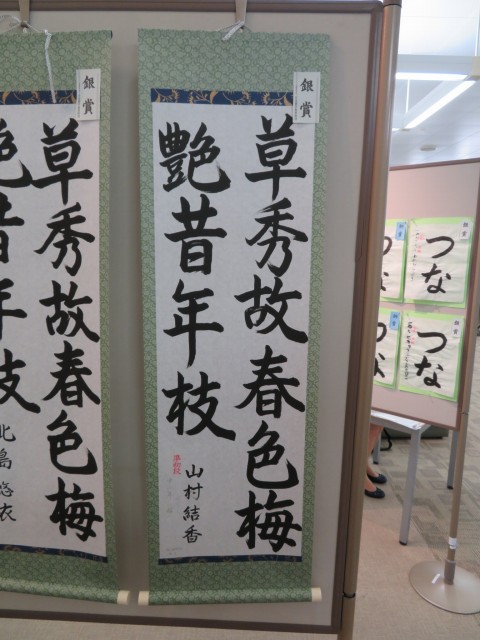 銀賞
草秀故春色梅
艶昔年枝
山村結香
銀賞
草秀故春色梅
艶昔年枝
北島悠衣
つな
つな